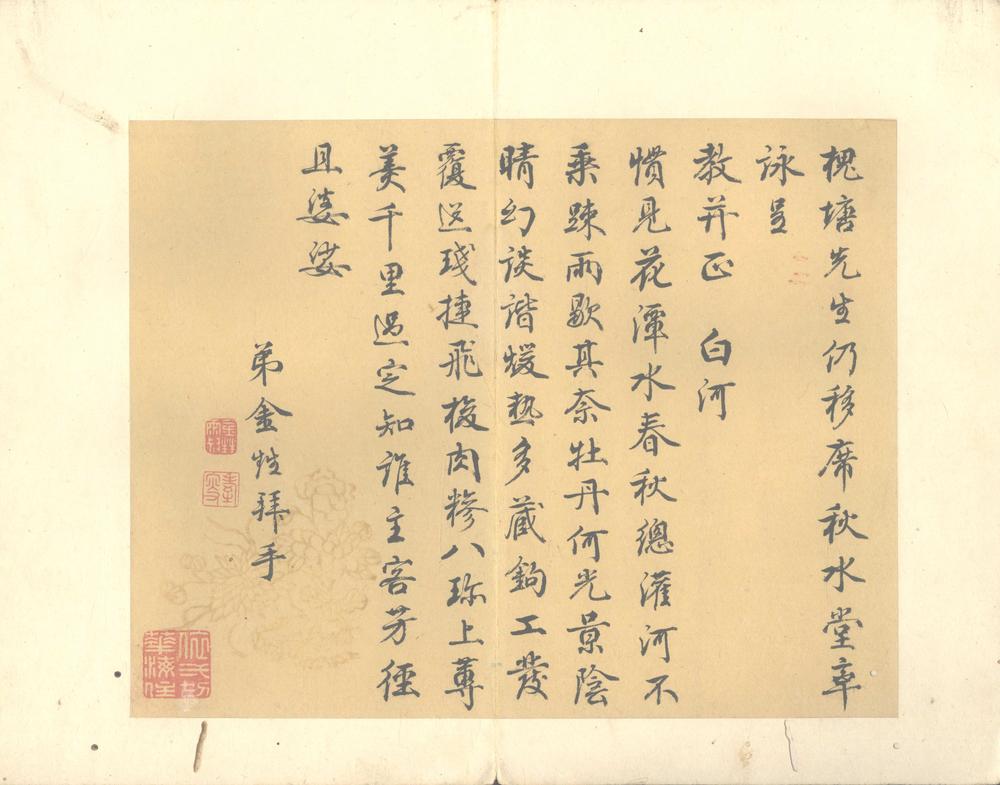 槐塘先生仍移席秋水堂率
詠呈
教并正 白河
慣見花潭水春秋總灌河不
乘踈雨歇其奈牡丹何光景陰
晴幻談諧煖熱多藏鉤工發
覆送琖捷飛梭肉糝八珎上蓴
羹千里過定知誰主客芳徑
且婆娑
弟金甡拜手